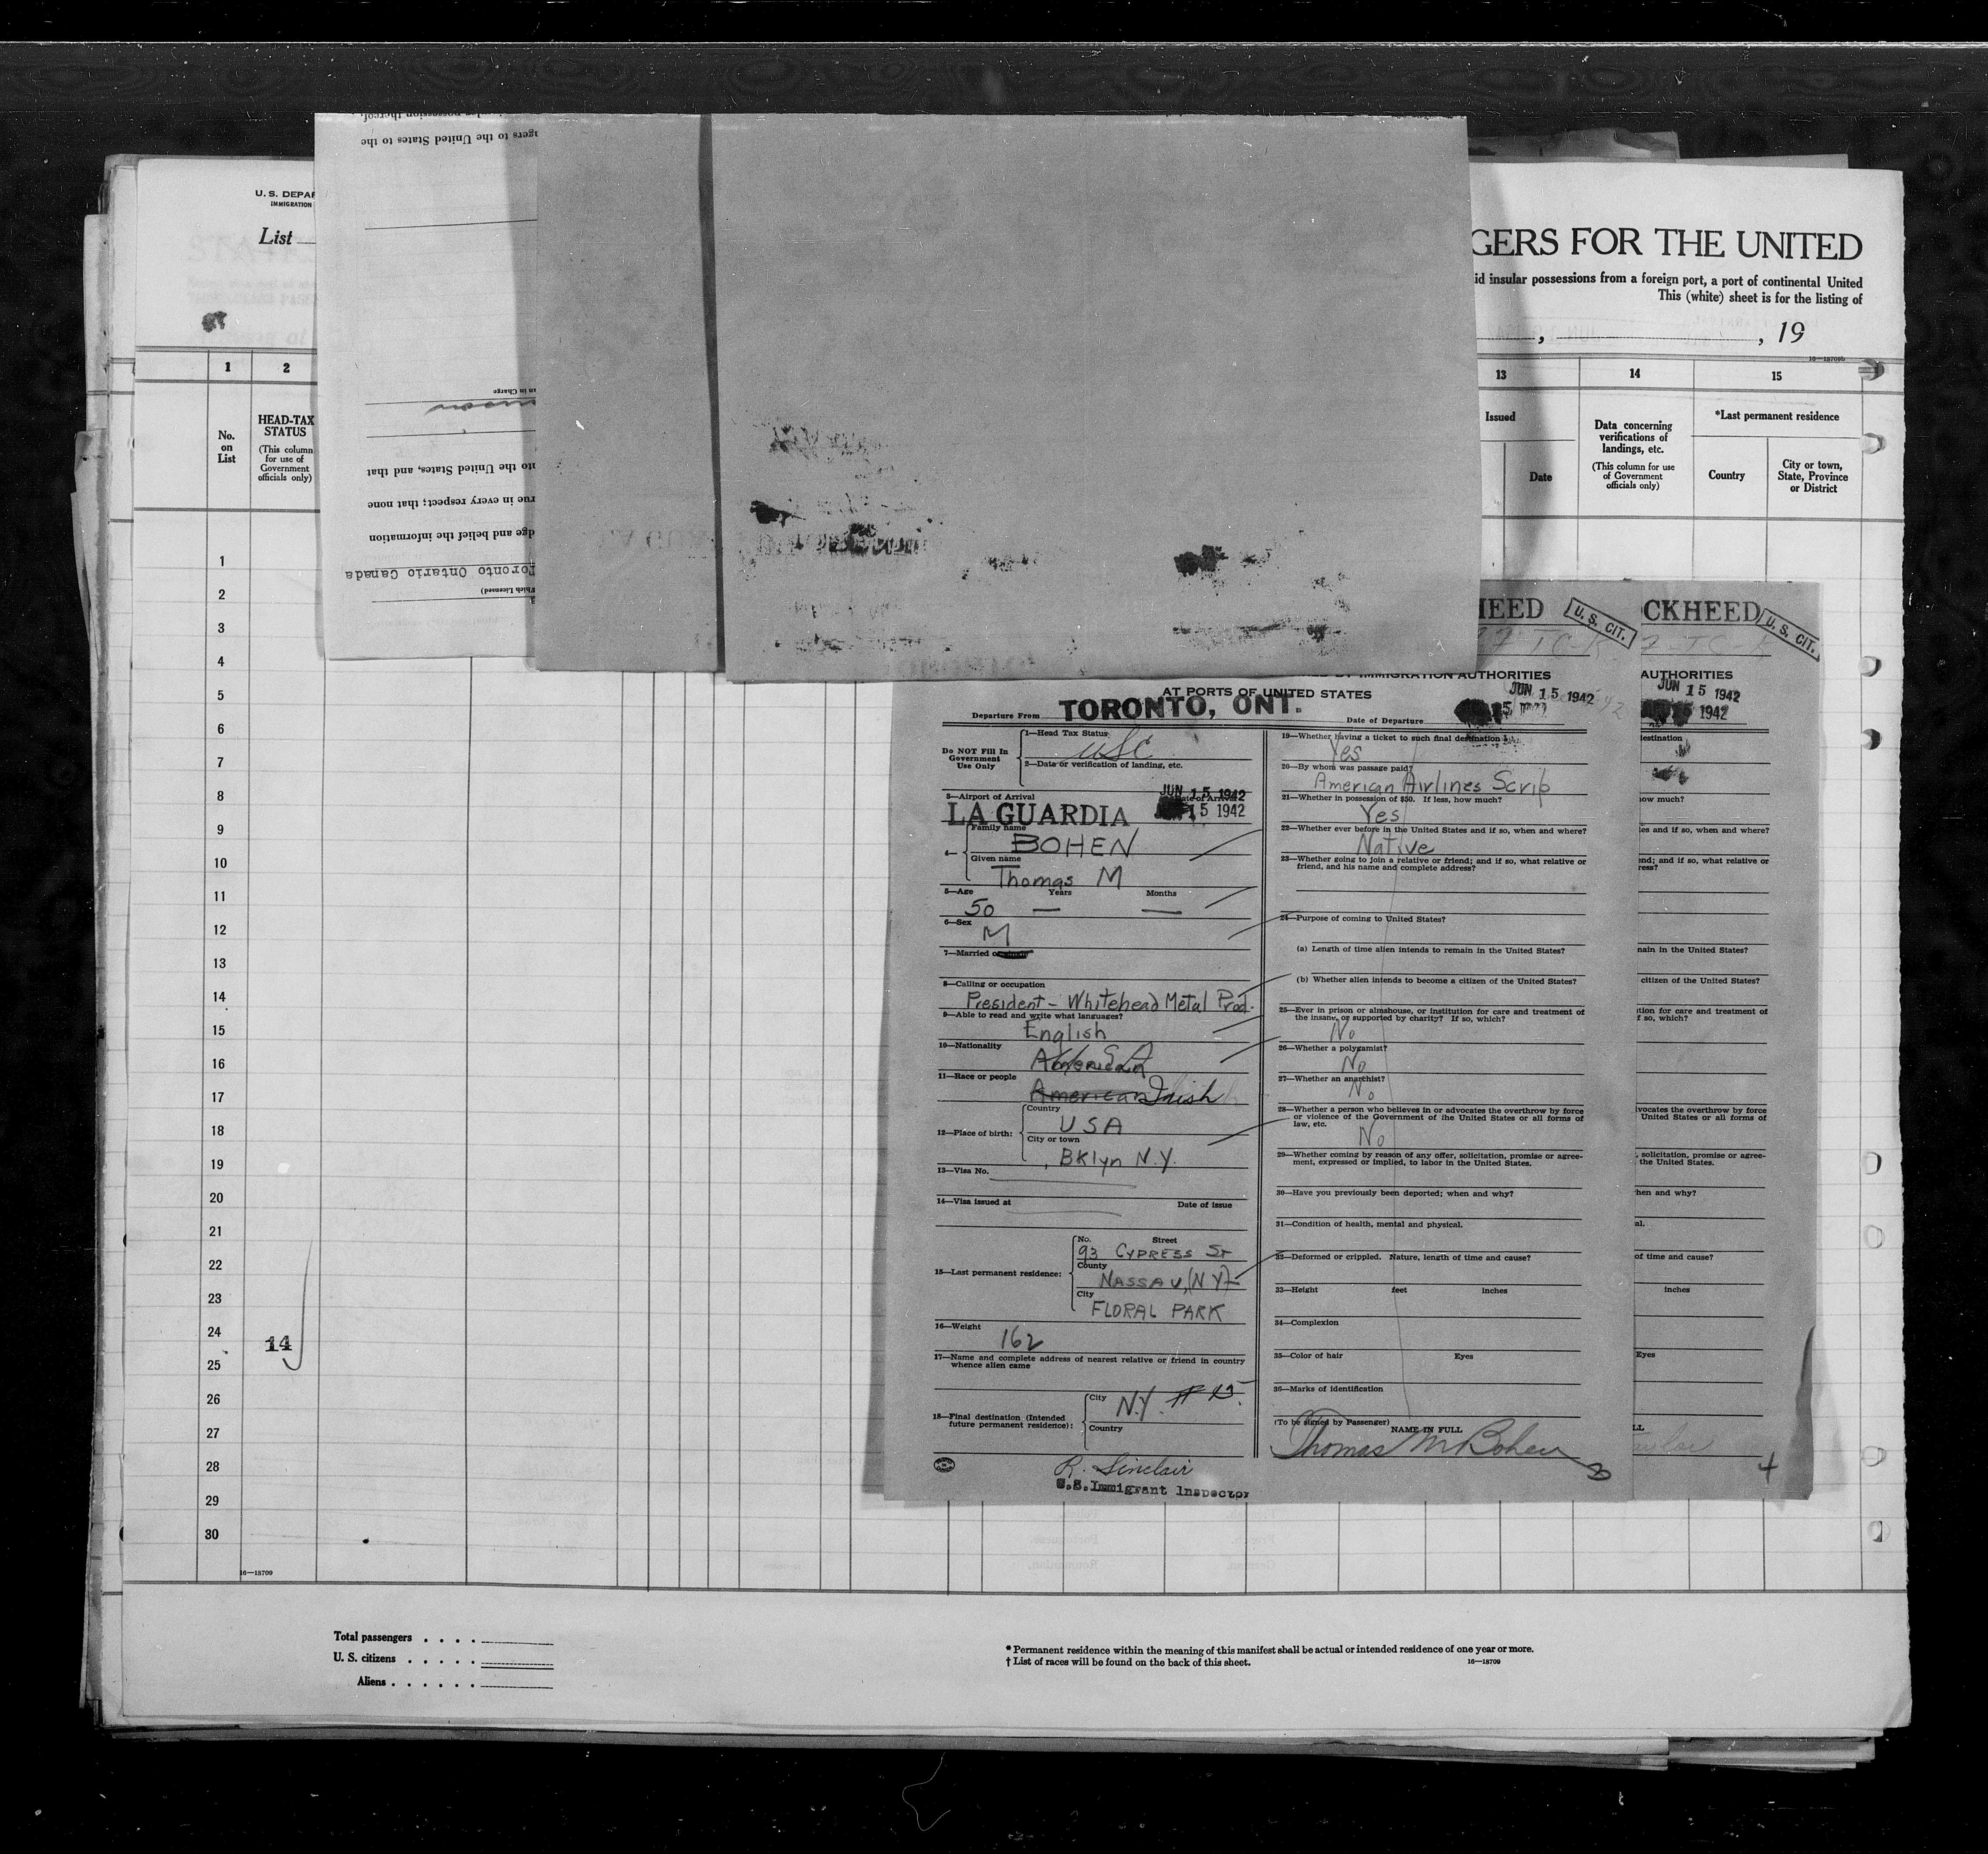 U. S. DEPAR
IMMIGRATION
List
GERS FOR THE UNITED
id insular possessions from a foreign port, a port of continental United
This (white) sheet is for the listing of
, , 19
16—18709b
1 2 13 14 15
No. on List
HEAD-TAX STATUS
(This column for use of Government officials only)
Issued
Date
Data concerning verifications of landings, etc.
(This column for use of Government officials only)
*Last permanent residence
Country
City or town, State, Province or District
gers to the United States to the
n in Charge
to the United States, and that
rue in every respect; that none
dge and belief the information
Toronto Ontario Canada
Which Licensed)
1
2
3
4
5
6
7
8
9
10
11
12
13
14
15
16
17
18
19
20
21
22
23
24
14
25
26
27
28
29
30
16—18709
HEED
U. S. CIT.
CKHEED
U. S. CIT.
IMMIGRATION AUTHORITIES
AT PORTS OF UNITED STATES
Departure From TORONTO, ONT.
Date of Departure JUN 15 1942
Do NOT Fill In Government Use Only
1—Head Tax Status
USC
2—Data or verification of landing, etc.
3—Airport of Arrival
LA GUARDIA
Date of Arrival
JUN 15 1942
15 1942
Family name
4— BOHEN
Given name
Thomas M
5—Age Years Months
50 — —
6—Sex
M
7—Married or
8—Calling or occupation
President - Whitehead Metal Prod.
9—Able to read and write what languages?
English
10—Nationality
American
11—Race or people
American Irish
Country
USA
12—Place of birth:
City or town
Bklyn N.Y.
13—Visa No.
14—Visa issued at Date of issue
No. Street
93 CYPRESS ST
County
15—Last permanent residence:
NASSAU, (N Y)
City
FLORAL PARK
16—Weight
162
17—Name and complete address of nearest relative or friend in country
whence alien came
City
N.Y.
18—Final destination (Intended
future permanent residence):
Country
R. Sinclair
U.S. Immigrant Inspector
19—Whether having a ticket to such final destination
Yes
20—By whom was passage paid?
American Airlines Scrip
21—Whether in possession of $50. If less, how much?
Yes
22—Whether ever before in the United States and if so, when and where?
Native
23—Whether going to join a relative or friend; and if so, what relative or
friend, and his name and complete address?
24—Purpose of coming to United States?
(a) Length of time alien intends to remain in the United States?
(b) Whether alien intends to become a citizen of the United States?
25—Ever in prison or almshouse, or institution for care and treatment of
the insane, or supported by charity? If so, which?
No
26—Whether a polygamist?
No
27—Whether an anarchist?
No
28—Whether a person who believes in or advocates the overthrow by force
or violence of the Government of the United States or all forms of
law, etc.
No
29—Whether coming by reason of any offer, solicitation, promise or agree-
ment, expressed or implied, to labor in the United States.
30—Have you previously been deported; when and why?
31—Condition of health, mental and physical.
32—Deformed or crippled. Nature, length of time and cause?
33—Height feet inches
34—Complexion
35—Color of hair Eyes
36—Marks of identification
(To be signed by Passenger)
NAME IN FULL
Thomas M Bohen
AUTHORITIES
JUN 15 1942
1942
destination
how much?
es and if so, when and where?
end; and if so, what relative or
ress?
main in the United States?
citizen of the United States?
tion for care and treatment of
f so, which?
vocates the overthrow by force
United States or all forms of
, solicitation, promise or agree-
the United States.
hen and why?
al.
of time and cause?
inches
Eyes
LL
Total passengers . . . .
U. S. citizens . . . . .
Aliens . . . . . .
* Permanent residence within the meaning of this manifest shall be actual or intended residence of one year or more.
† List of races will be found on the back of this sheet.
16—18709